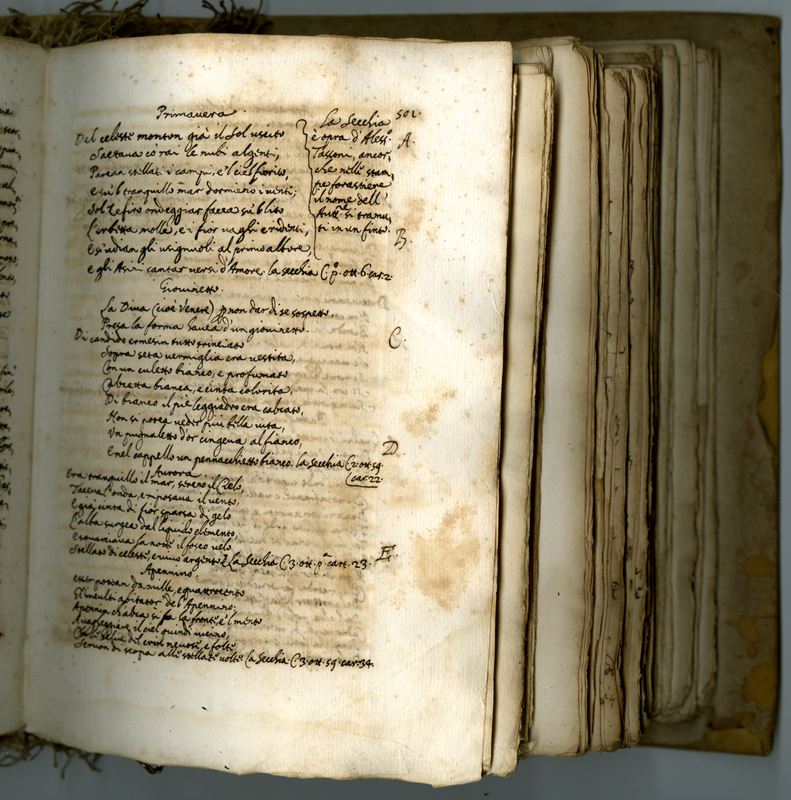 501.
Primavera
Del celeste monton già il Sol uscito
Saettava co' rai le nubi algenti,
Parean stellati i campi, e'l ciel fiorito,
e su'l tranquillo mar dormieno i venti;
Sol Zefiro ondeggiar facea su'l lito
L'erbetta molle, e i fior vaghi e ridenti,
E s'udian gli usignuoli al primo albore
e gli Asini cantar versi d'Amore. la secchia C. p.º ott. 6. car. 2.
La Secchia
è opra d'Aless.º
Tassoni, ancor,
che nelle stam,
pe forastiere
il nome dell'
Autt.re si tramu,
ti in un finto.
A.
B.
Giovinetto.
La Diva (cioè Venere) p non dar di se sospetto,
Presa la forma havea d'un giovinetto.
C.
Di candido ermesin tutto trinciato
Sopra seta vermiglia era vestita,
Con un culetto bianco, e profumato
Calzetta bianca, e cinta colorita,
Di bianco il piè leggiadro era calzato,
Non si potea veder più bella vita,
Un pugnaletto d'or cingeva al fianco,
E nel cappello un pennacchietto bianco. la Secchia C. 2. ott. 59.
car. 22.
D.
Aurora
Era tranquillo il mar, sereno il Cielo,
Taceva l'onda, e riposava il vento,
E già cinta di fior sparsa di gelo
L'alba surgea dal liquido elemento,
E squarciava la notte il fosco velo
Stellato di celeste, e vivo argento. La Secchia C. 3. ott. p.ª cart. 23.
E.
Apennino.
esser potean da mille, e quattrocento
Gl'inculti abitator de l'Apennino;
Apennin ch'alza sì la fronte, e'l mento
A vagheggiare il ciel quindi vicino,
Che le selve del crin nevose, e folte
Servon di scopa alle stellate volte. La Secchia. C. 3. ott. 59. car. 34.